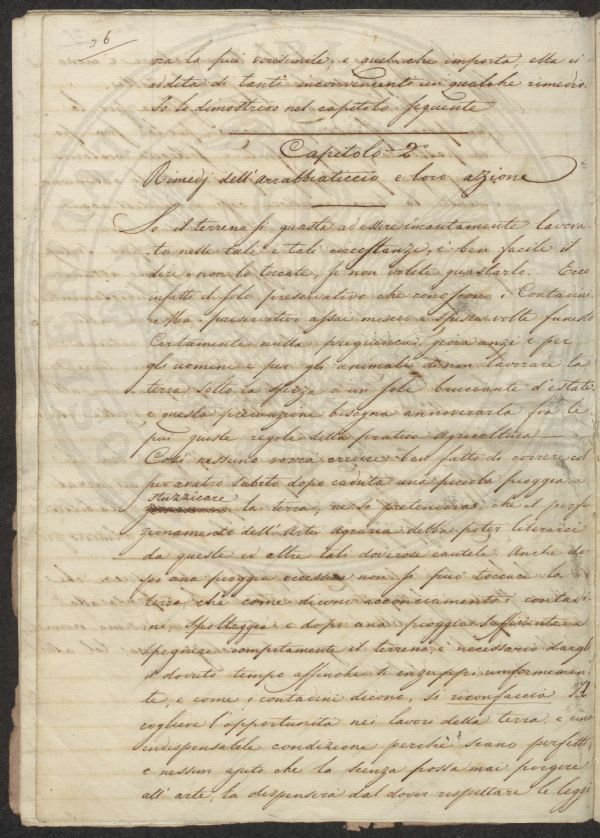 36
na lo più verisimile, e quel che importa, ella ci
addita di tanti inconvenienti un qualche rimedio.
Io lo dimostrerò nel capitolo seguente
Capitolo 2º
Rimedj dell'arrabbiaticcio e loro azione
Se il terreno si guasta ad essere incautamente lavora-
to nelle tali e tali circostanze, è ben facile il
dire = non lo toccate, se non volete guastarlo. Ecco
infatti il solo preservativo che conoscono i Contadini
Ma preservativo assai misero e spesse volte funesto
Certamente nulla pregiudica, giova anzi e per
gli uomini e per gli animali di non lavorare la
terra sotto la sferza d'un sole bruciante d'estate
e questa precauzione bisogna annoverarla fra le
più giuste regole della pratica Agricoltura
Così nessuno vorrà credere ben fatto di correre col
suo aratro subito dopo caduta una piccola pioggia a
stuzzicare la terra, ne si pretenderà, che il perfe-
zionamento dell'Arte Agraria debba poter liberarci
da queste ed altre tali doverose cautele. Anche do-
po una pioggia eccessiva non si può toccare la
terra, che come dicono acconciamente i conta-
ni, spolteggia e dopo una pioggia sufficiente a
spegnere compitamente il terreno, è necessario dargli
il dovuto tempo affinchè s'inzuppi uniformemen-
te, e come i contadini dicono, si riconfaccia. Il
cogliere l'opportunità nei lavori della terra, è una
indispensabile condizione perchè siano perfetti,
e nessun ajuto che la scienza possa mai porgere
all'arte, la dispenserà dal dover rispettare le leggi